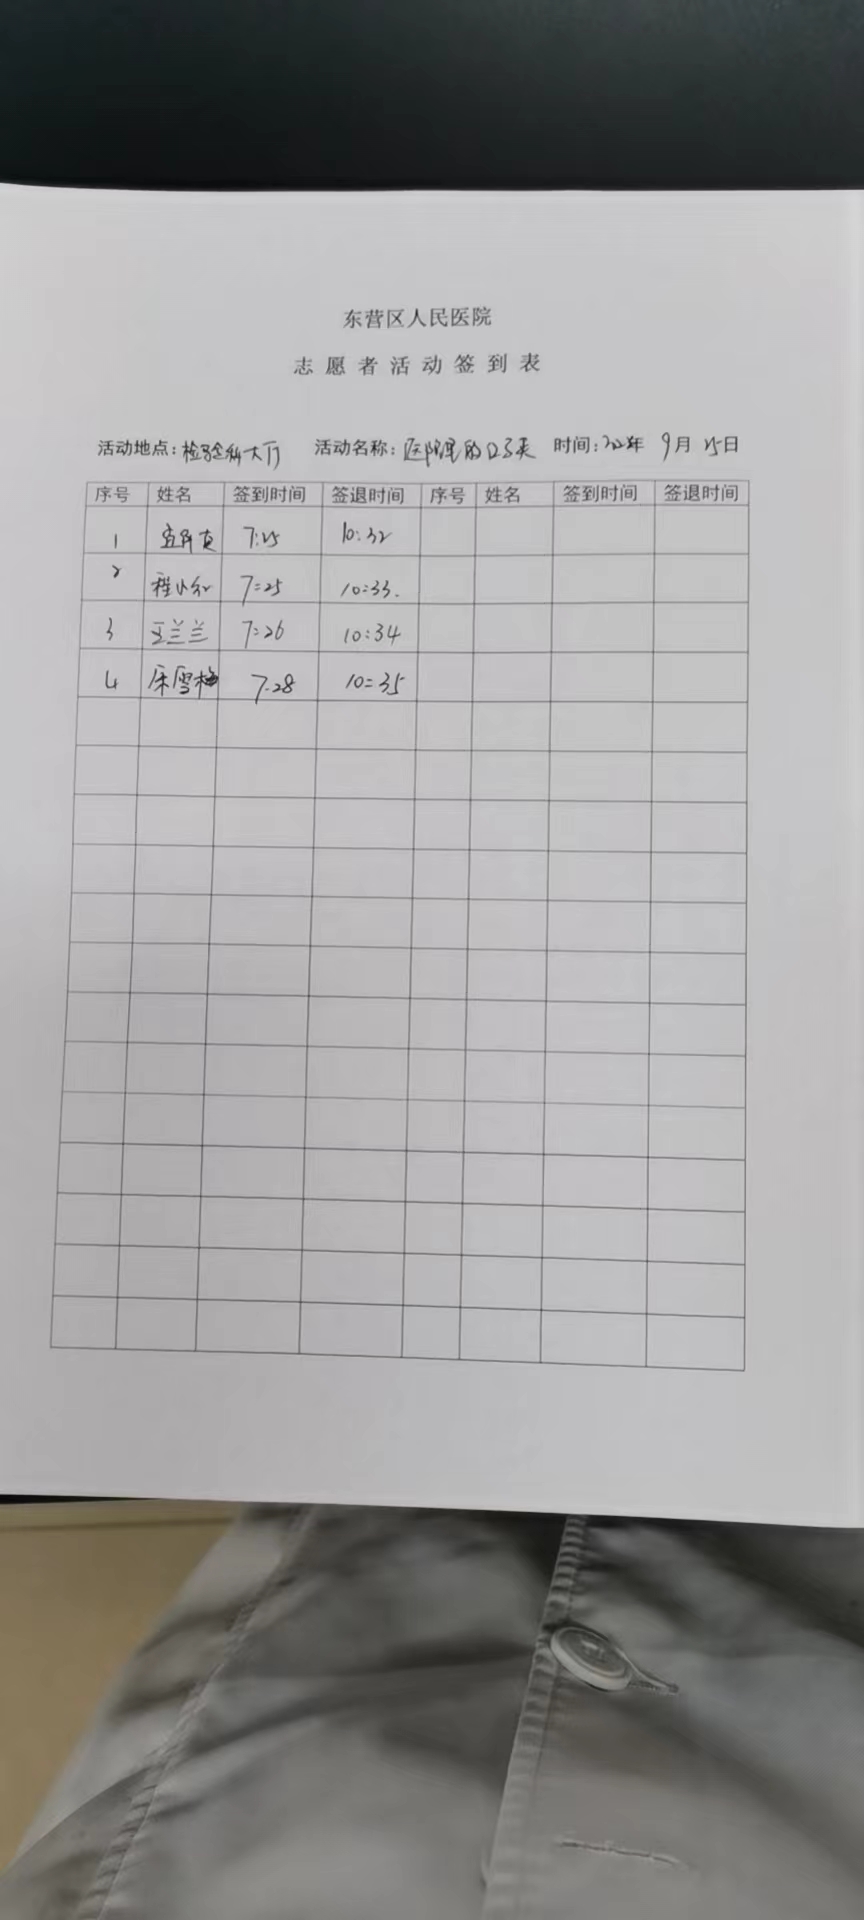 东营区人民医院
志愿者活动签到表
活动地点：检验科大厅 活动名称：医院里的 时间： 年 9月25日
序号 姓名 签到时间 签退时间 序号 姓名 签到时间 签退时间
1 7:25 10:32
2 程小红 7:25 10:33.
3 王兰兰 7:26 10:34
4 雪梅 7.28 10:35